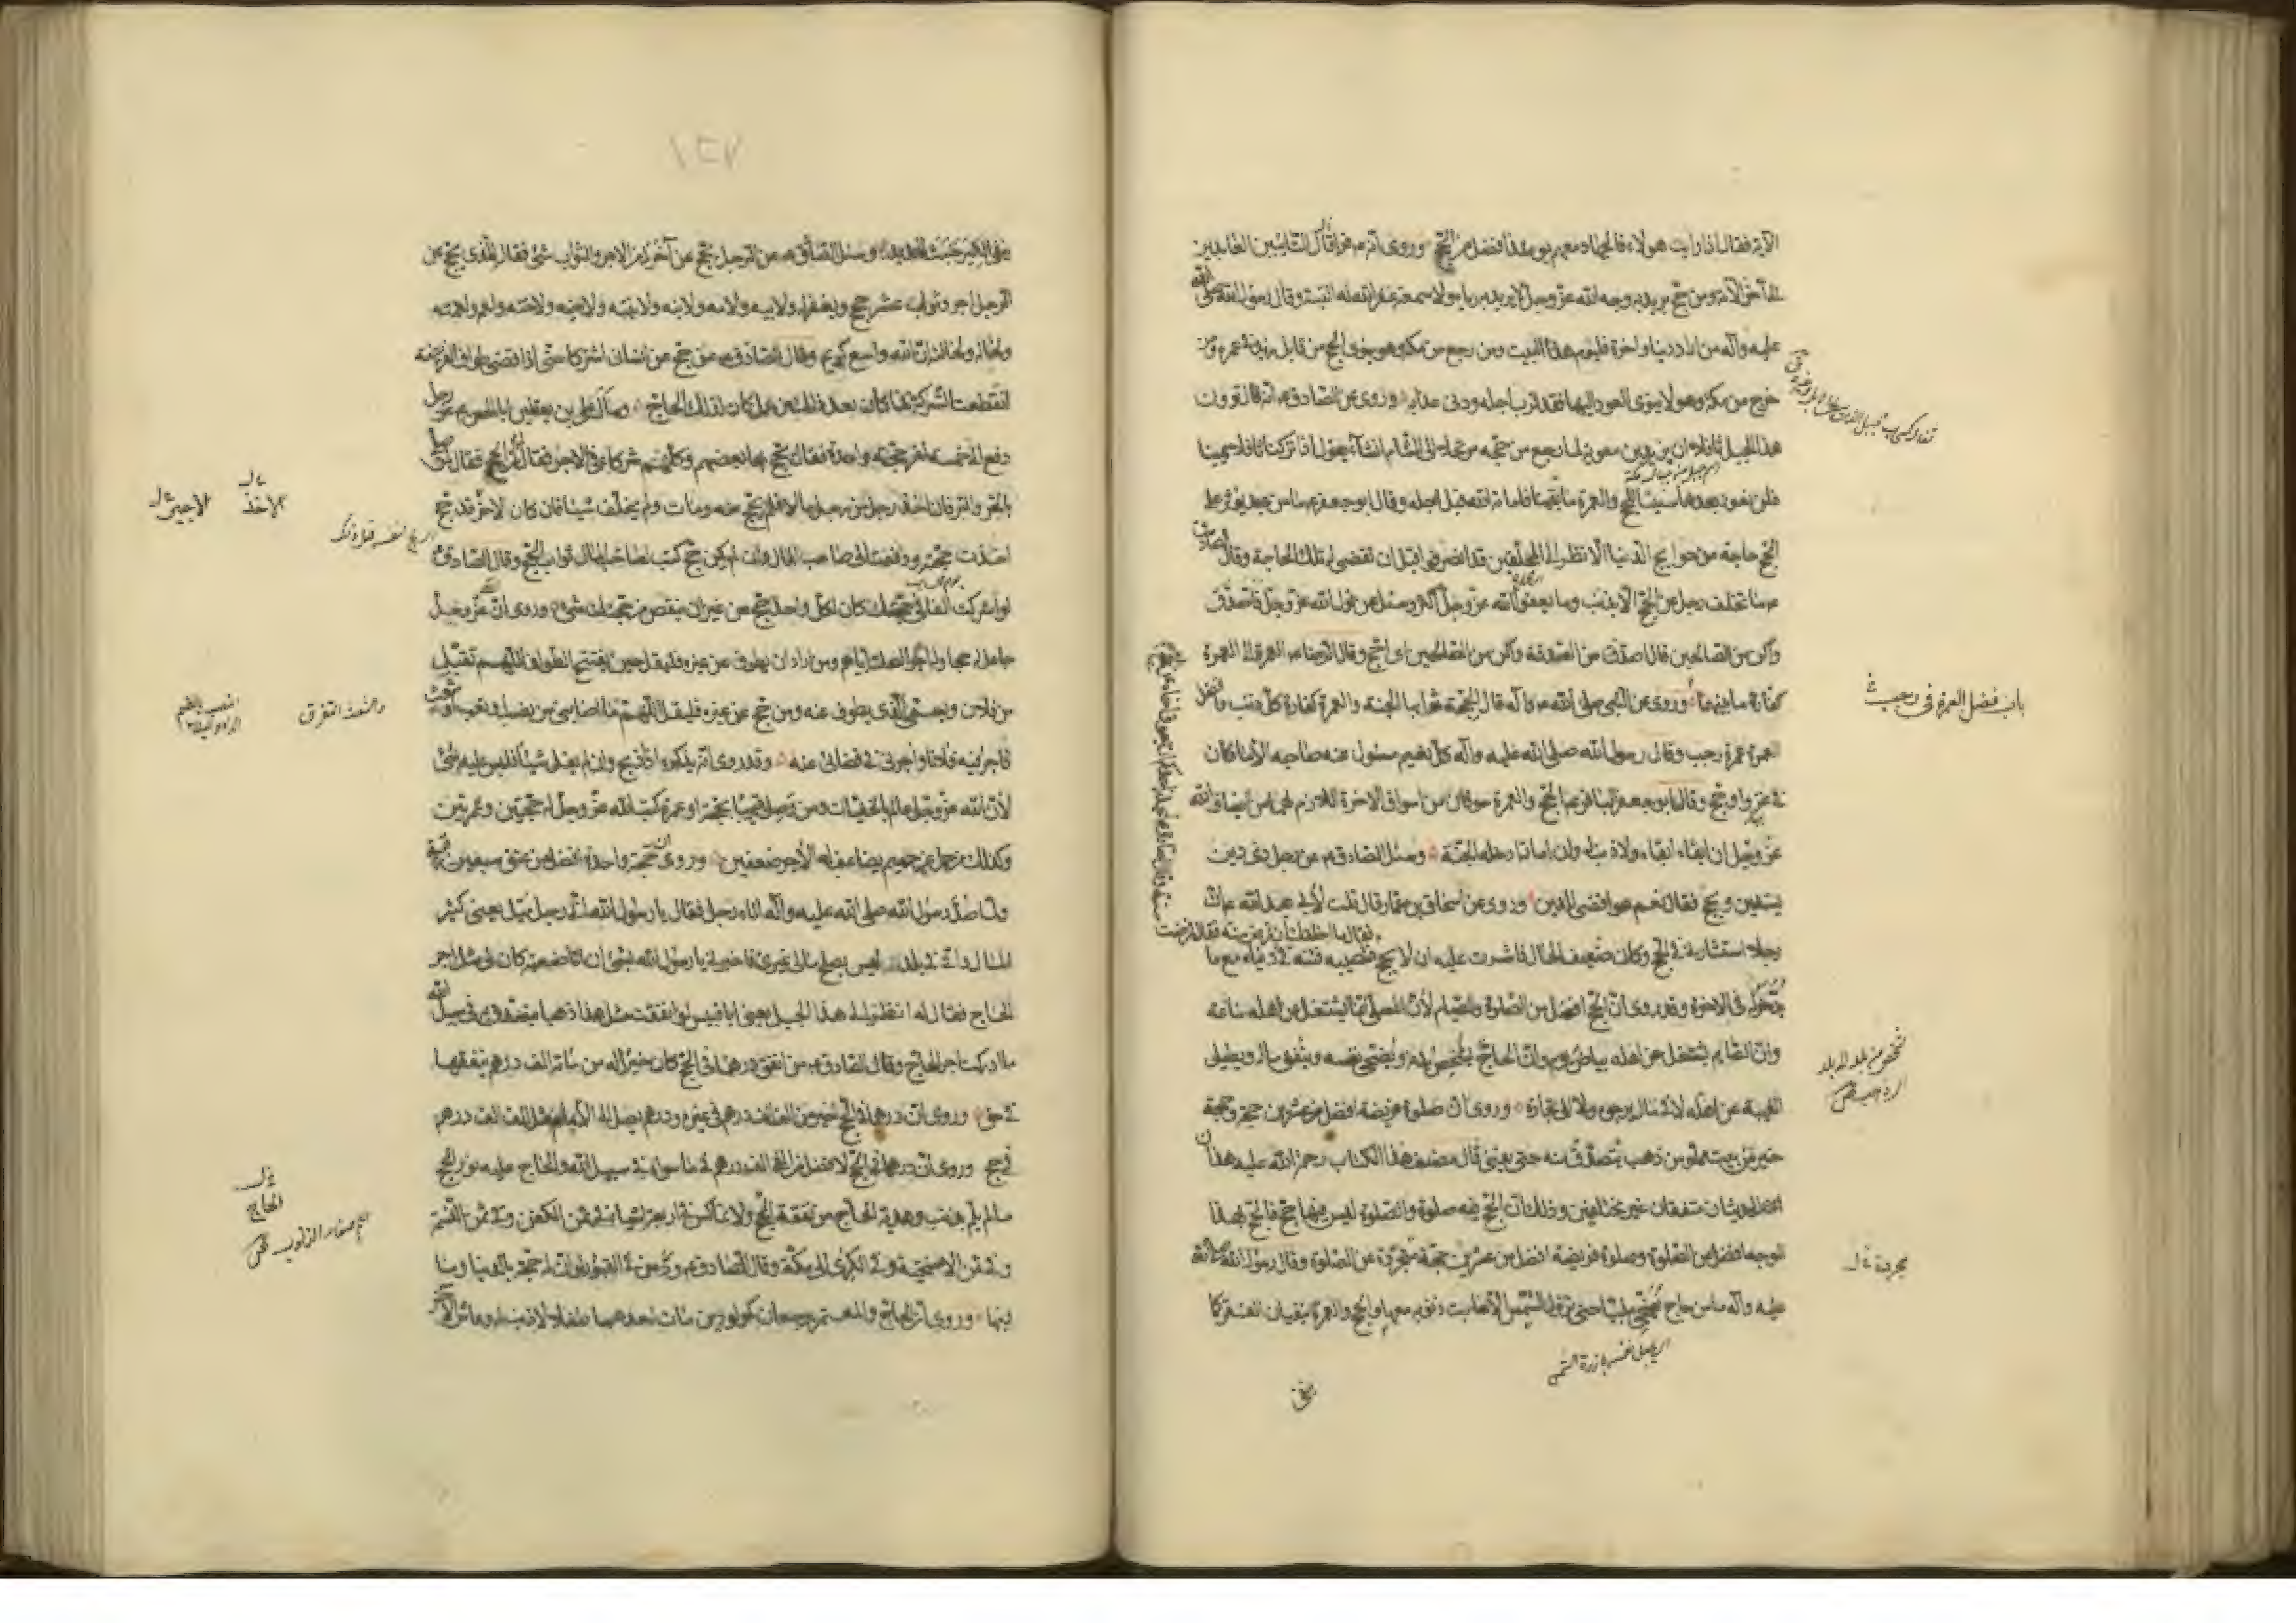 الآية فقال اذا رايت هولاء فالجهاد معهم يومئذ افضل من الحج وروى انه ع قرأ التائبين العابدين
الى آخر الآية ومن حج يريد به وجه الله عز وجل لا يريد به رياء ولا سمعة غفر الله له البتة وقال رسول الله صلى الله
عليه وآله من اراد دنيا وآخرة فليؤم هذا البيت ومن رجع من مكة وهو ينوى الحج من قابل زيد فى عمره ومن
خرج من مكة وهو لا ينوى العود اليها فقد قرب اجله ودنى عذابه وروى عن الصادق ع انه قال ترون
هذا الجبل ثافلا ان يزيد بن معوية لما رجع من حجه مرتحلا الى الشام انشأ يقول اذا تركنا ثافلا يمينا
فلن نعود بعدها سنينا للحج والعمرة ما بقينا فاماته الله قبل اجله وقال ابو جعفر ع ما من عبد يؤثر على
الحج حاجة من حوايج الدنيا الا نظر الى المحلقين قد انصرفوا قبل ان تقضى له تلك الحاجة وقال الصادق
ع ما تخلف رجل عن الحج الا بذنب وما يعفو الله عز وجل اكثر وسئل عن قول الله عز وجل فاصدق
واكن من الصالحين قال اصدق من الصدقة واكن من الصالحين اى احج وقال الرضا ع العمرة الى العمرة
كفارة ما بينهما وروى عن النبى صلى الله عليه وآله قال الحجة ثوابها الجنة والعمرة كفارة كل ذنب وافضل
العمرة عمرة رجب وقال رسول الله صلى الله عليه وآله كل نعيم مسئول عنه صاحبه الا ما كان
فى غزو او حج وقال ابو جعفر الحج والعمرة سوقان من اسواق الآخرة اللازم لهما من اضياف الله
عز وجل ان ابقاه ابقاه ولا ذنب له وان اماته ادخله الجنة وسئل الصادق ع عن رجل ذى دين
يستدين ويحج فقال نعم هو اقضى للدين وروى عن اسحاق بن عمار قال قلت لابى عبد الله ع ان
رجلا استشارنى فى الحج وكان ضعيف الحال فاشرت عليه ان لا يحج فتصيبه فتنة فى دنياه مع ما
يدخر له فى الآخرة وقد روى ان الحج افضل من الصلوة والصيام لان المصلى انما يشتغل عن اهله ساعة
وان الصايم يشتغل عن اهله بياض يوم وان الحاج يشخص بدنه ويضحى نفسه وينفق ماله ويطيل
الغيبة عن اهله لا فى مال يرجوه ولا الى تجارة وروى ان صلوة فريضة افضل من عشرين حجة وحجة
خير من بيت مملو من ذهب يتصدق منه حتى يفنى قال مصنف هذا الكتاب رحمة الله عليه هذان
الحديثان متفقان غير مختلفين وذلك ان الحج فيه صلوة والصلوة ليس فيها حج فالحج بهذا
الوجه افضل من الصلوة وصلوة فريضة افضل من عشرين حجة متجردة عن الصلوة وقال رسول الله صلى الله
عليه وآله ما من حاج يضحى ملبيا حتى تزول الشمس الا غابت ذنوبه معها والحج والعمرة ينفيان الفقر كما
باب فضل العمرة فى رجب
١٢٧
ينفى الكير خبث الحديد وسئل الصادق ع عن الرجل يحج عن آخر له من الاجر والثواب شئ فقال للذى يحج عن
الرجل اجر وثواب عشر حجج ويغفر له ولابيه ولامه ولابنه ولابنته ولاخيه ولاخته ولعمه ولعمته
ولخاله ولخالته ان الله واسع كريم وقال الصادق ع من حج عن انسان اشتركا حتى اذا قضى طواف الفريضة
انقطعت الشركة فما كان بعد ذلك من عمل كان لذلك الحاج وسأل على بن يقطين ابا الحسن ع عن رجل
دفع الى خمسة نفر حجة واحدة فقال يحج بها بعضهم وكلهم شركاء فى الاجر فقال لمن الحج فقال لمن صلى
بالحر والبرد فان اخذ رجل من رجل مالا فلم يحج عنه ومات ولم يخلف شيئا فان كان الآخذ قد حج
اخذت حجته ودفعت الى صاحب المال وان لم يكن حج كتب لصاحب المال ثواب الحج وقال الصادق
لو اشركت الفا فى حجتك كان لكل واحد حج من غير ان ينقص من حجتك شئ وروى ان الله عز وجل
جاعل له حجا ولهم حجا وله اجر لصلته اياهم ومن اراد ان يطوف عن غيره فليقل حين يفتتح الطواف اللهم تقبل
من فلان ويسمى الذى يطوف عنه ومن حج عن غيره فليقل اللهم ما اصابنى من نصب او تعب او شعث
فاجر فيه فلانا واجرنى فى قضائى عنه وقد روى انه يذكره اذا ذبح وان لم يقل شيئا فليس عليه شئ
لان الله عز وجل عالم بالخفيات ومن وصل قريبا بحجة او عمرة كتب الله عز وجل له حجتين وعمرتين
وكذلك من حمل عن حميم يضاعف له الاجر ضعفين وروى ان حجة واحدة افضل من عتق سبعين رقبة
ولما صد رسول الله صلى الله عليه وآله اتاه رجل فقال يا رسول الله انى رجل ميل يعنى كثير
المال وانى فى بلد ليس يصلح مالى غيرى فاخبرنى يا رسول الله بشئ ان انا صنعته كان لى مثل اجر
الحاج فقال له انظر الى هذا الجبل يعنى ابا قبيس لو انفقت مثل هذا ذهبا تتصدق به فى سبيل الله
ما ادركت اجر الحاج وقال الصادق ع من انفق درهما فى الحج كان خيرا له من مائة الف درهم ينفقها
فى حق وروى ان درهما فى الحج خير من الف الف درهم فى غيره ودرهم يصل الى الامام مثل الف الف درهم
فى حج وروى ان درهما فى الحج افضل من الفى الف درهم فى ما سواه فى سبيل الله والحاج عليه نور الحج
ما لم يلم بذنب وهدية الحاج من نفقة الحج ولا تماكس فى اربعة اشياء فى ثمن الكفن وفى ثمن النسمة
وفى ثمن الاضحية وفى الكرى الى مكة وقال الصادق ع ود من فى القبور لو ان له حجة بالدنيا وما
فيها وروى ان الحاج والمعتمر يرجعان كمولودين مات احدهما طفلا لا ذنب له وعاش الآخر